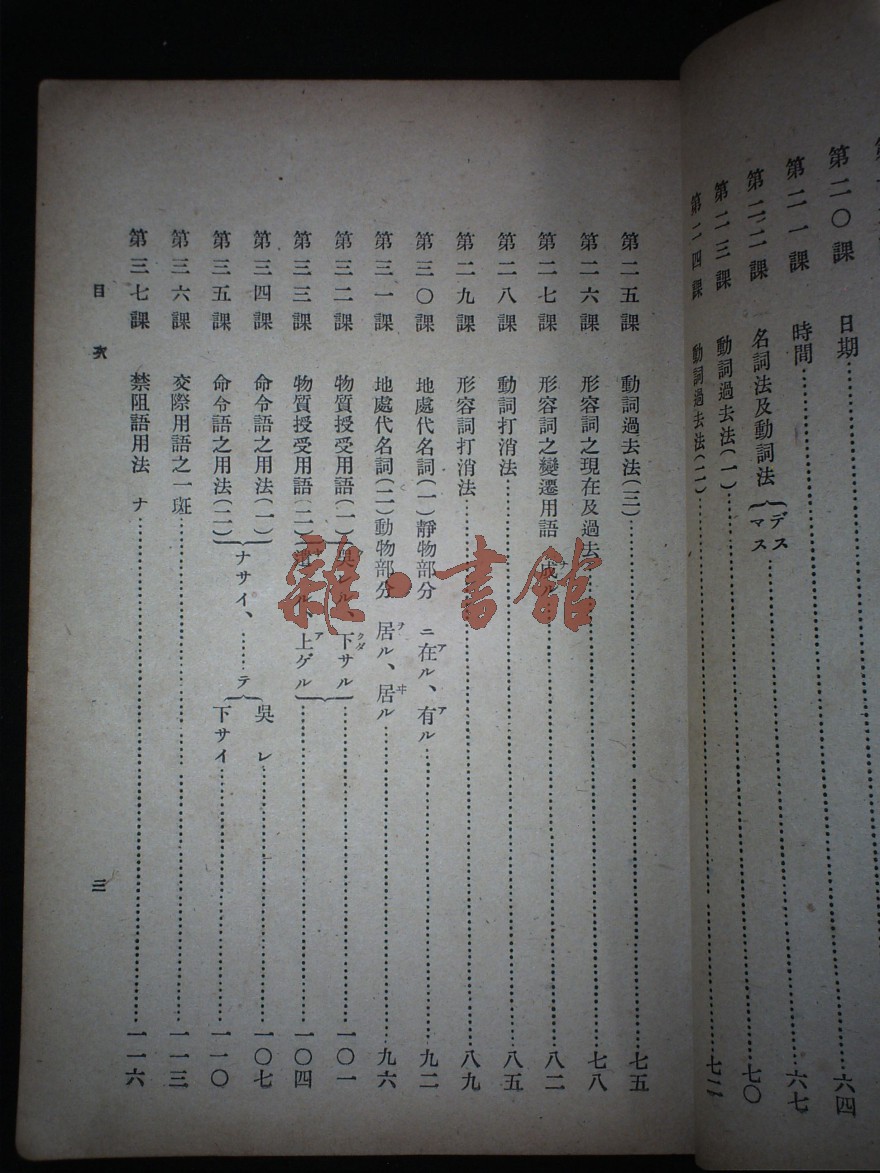 第二〇課 日期……六四
第二一課 時間……六七
第二二課 名詞法及動詞法{デス マス……七〇
第二三課 動詞過去法(一)
第二四課 動詞過去法(二)……七二
第二五課 動詞過去法(三)……七五
第二六課 形容詞之現在及過去……七八
第二七課 形容詞之變遷用語 成ル……八二
第二八課 動詞打消法……八五
第二九課 形容詞打消法……八九
第三〇課 地處代名詞(一)靜物部分 ニ在アル、有アル……九二
第三一課 地處代名詞(二)動物部分 居ヲル、居ヰル……九六
第三二課 物質授受用語(一) 吳レル、下クダサル……一〇一
第三三課 物質授受用語(二) ル、上アゲル……一〇四
第三四課 命令語之用法(一) 吳レ……一〇七
第三五課 命令語之用法(二) ナサイ、……テ 下サイ……一一〇
第三六課 交際用語之一斑……一一三
第三七課 禁阻語用法 ナ……一一六
目次
三
雜·書館